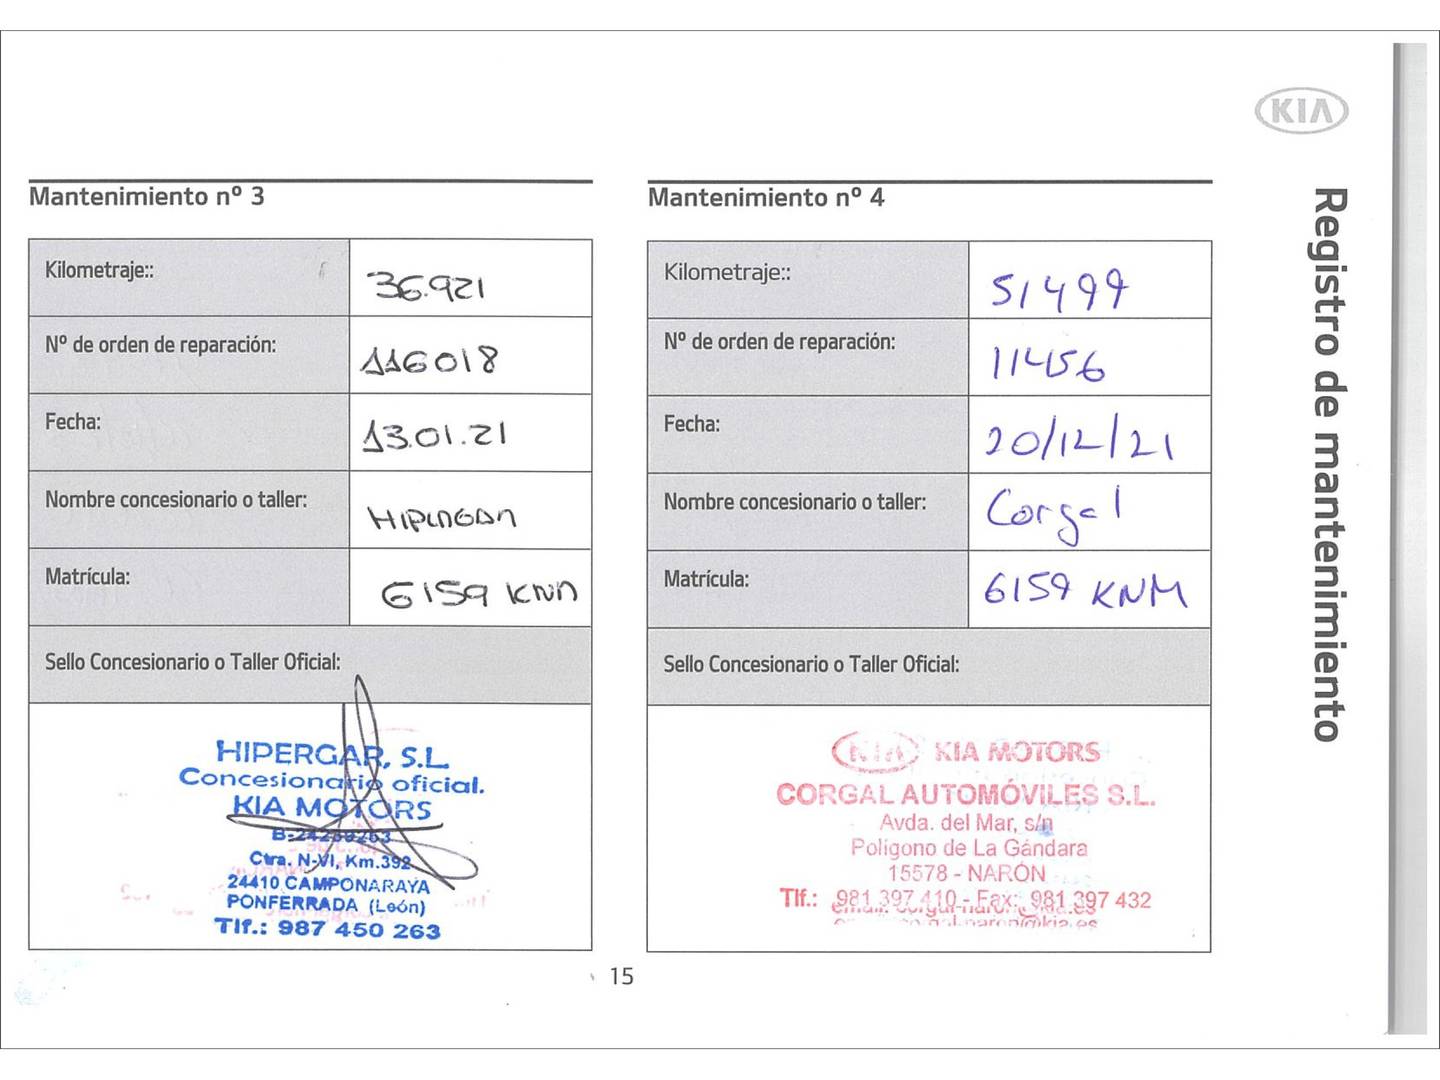 KIA
Registro de mantenimiento
Mantenimiento nº 3
Kilometraje:: 36.921
Nº de orden de reparación: 116018
Fecha: 13.01.21
Nombre concesionario o taller: HIPERGAR
Matrícula: 6159 KNM
Sello Concesionario o Taller Oficial:
HIPERGAR, S.L.
Concesionario oficial.
KIA MOTORS
Ctra. N-VI, Km.392
24410 CAMPONARAYA
PONFERRADA (León)
Tlf.: 987 450 263
Mantenimiento nº 4
Kilometraje:: 51499
Nº de orden de reparación: 11456
Fecha: 20/12/21
Nombre concesionario o taller: Corgal
Matrícula: 6159 KNM
Sello Concesionario o Taller Oficial:
KIA KIA MOTORS
CORGAL AUTOMÓVILES S.L.
Avda. del Mar, s/n
Polígono de La Gándara
15578 - NARÓN
Tlf.: 981 397 410 - Fax: 981 397 432
15